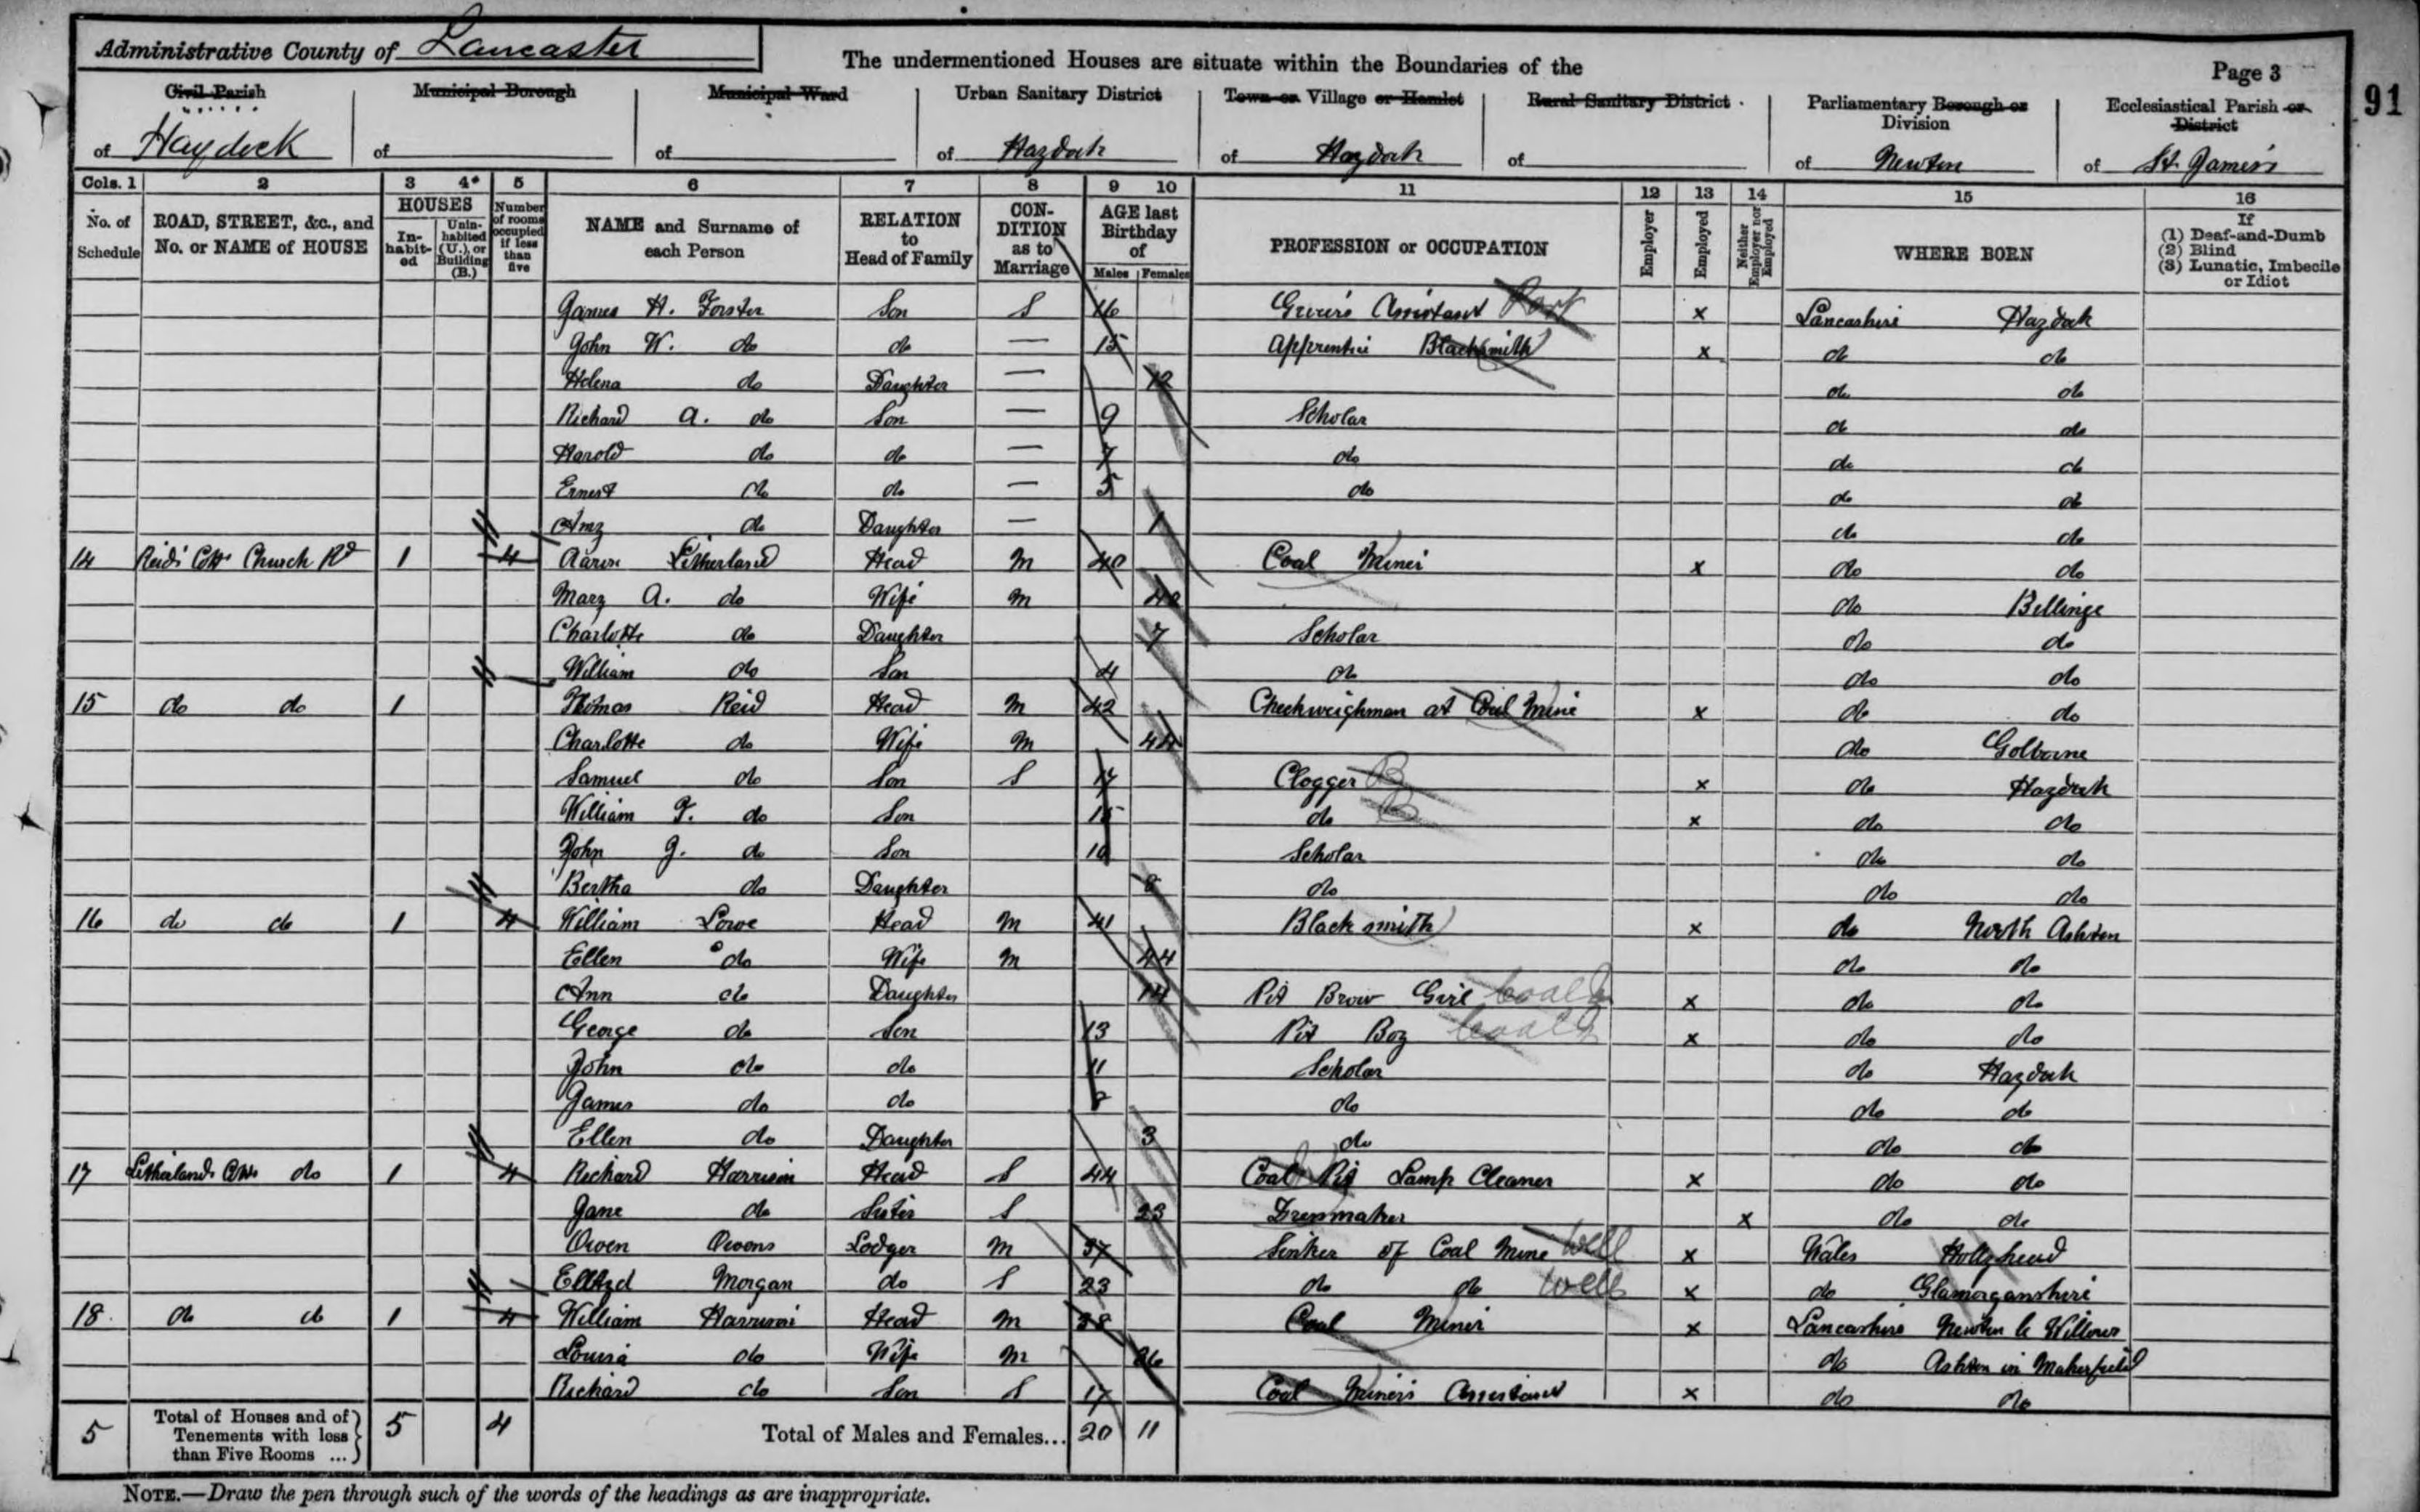 Administrative County of Lancaster
The undermentioned Houses are situate within the Boundaries of the
Page 3
91
Civil Parish of Haydock
Municipal Borough of
Municipal Ward of
Urban Sanitary District of Haydock
Town or Village or Hamlet of Haydock
Rural Sanitary District of
Parliamentary Borough or Division of Newton
Ecclesiastical Parish or District of St. James's
Cols. 1 2 3 4* 5 6 7 8 9 10 11 12 13 14 15 16
No. of Schedule
ROAD, STREET, &c., and No. or NAME of HOUSE
HOUSES
In-habit-ed
Unin-habited (U.), or Building (B.)
Number of rooms occupied if less than five
NAME and Surname of each Person
RELATION to Head of Family
CON-DITION as to Marriage
AGE last Birthday of
Males Females
PROFESSION or OCCUPATION
Employer
Employed
Neither Employer nor Employed
WHERE BORN
If (1) Deaf-and-Dumb (2) Blind (3) Lunatic, Imbecile or Idiot
James H. Forster Son S 16 Grocer's Assistant x Lancashire Haydock
John W. do do — 15 Apprentice Blacksmith x do do
Helena do Daughter — 12 do do
Richard A. do Son — 9 Scholar do do
Harold do do — 7 do do do
Ernest do do — 5 do do do
Amy do Daughter — 1 do do
14 Reid's Cotts Church Rd 1 4 Aaron Litherland Head M 40 Coal Miner x do do
Mary A. do Wife M do Billinge
Charlotte do Daughter 7 Scholar do do
William do Son 4 do do do
15 do do 1 Thomas Reid Head M 42 Checkweighman at Coal Mine x do do
Charlotte do Wife M 44 do Golborne
Samuel do Son S 17 Clogger B x do Haydock
William T. do Son 15 do B x do do
John J. do Son 10 Scholar do do
Bertha do Daughter 8 do do do
16 do do 1 4 William Lowe Head M 41 Blacksmith x do North Ashton
Ellen do Wife M 44 do do
Ann do Daughter 14 Pit Brow Girl Coal x do do
George do Son 13 Pit Boy Coal x do do
John do do 11 Scholar do Haydock
James do do 8 do do do
Ellen do Daughter 3 do do do
17 Litherlands Cotts do 1 4 Richard Harrison Head S 44 Coal Pit Lamp Cleaner x do do
Jane do Sister S 23 Dressmaker x do do
Owen Owens Lodger M 37 Sinker of Coal Mine Well x Wales Hollyhead
Morgan do S 23 do do Well x do Glamorganshire
18 do do 1 4 William Harrison Head M 38 Coal Miner x Lancashire Newton le Willows
Louisa do Wife M 36 do Ashton in Makerfield
Richard do Son S 17 Coal Miner's Assistant x do do
5 Total of Houses and of Tenements with less than Five Rooms ... 5 4 Total of Males and Females... 20 11
NOTE.—Draw the pen through such of the words of the headings as are inappropriate.